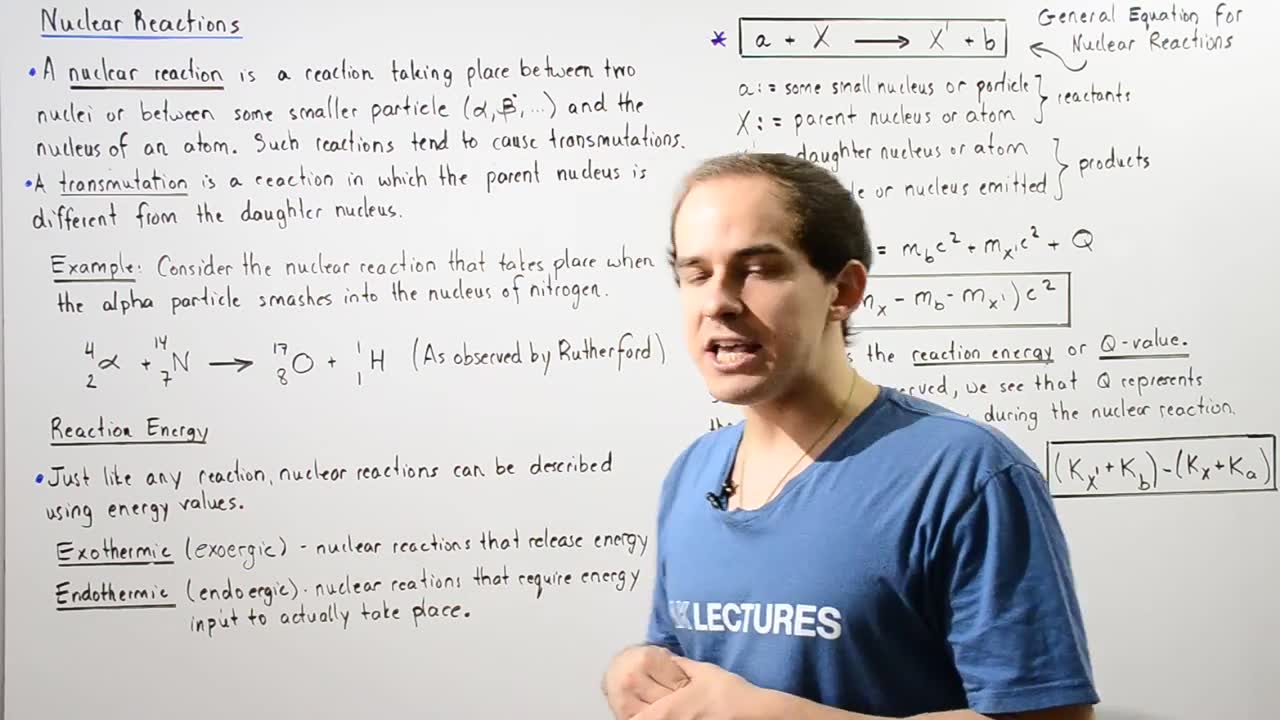 Nuclear Reactions
• A nuclear reaction is a reaction taking place between two
nuclei or between some smaller particle (α, β, ...) and the
nucleus of an atom. Such reactions tend to cause transmutations.
• A transmutation is a reaction in which the parent nucleus is
different from the daughter nucleus.
Example: Consider the nuclear reaction that takes place when
the alpha particle smashes into the nucleus of nitrogen.
⁴₂α + ¹⁴₇N → ¹⁷₈O + ¹₁H (As observed by Rutherford)
Reaction Energy
• Just like any reaction, nuclear reactions can be described
using energy values.
Exothermic (exoergic) - nuclear reactions that release energy
Endothermic (endoergic) - nuclear reations that require energy
input to actually take place.
* a + X → X' + b
General Equation for
Nuclear Reactions
a := some small nucleus or particle
X := parent nucleus or atom
} reactants
daughter nucleus or atom
or nucleus emitted
} products
= m_b c² + m_x' c² + Q
- m_b - m_x') c²
the reaction energy or Q-value.
we see that Q represents
during the nuclear reaction.
(K_x' + K_b) - (K_x + K_a)
LECTURES